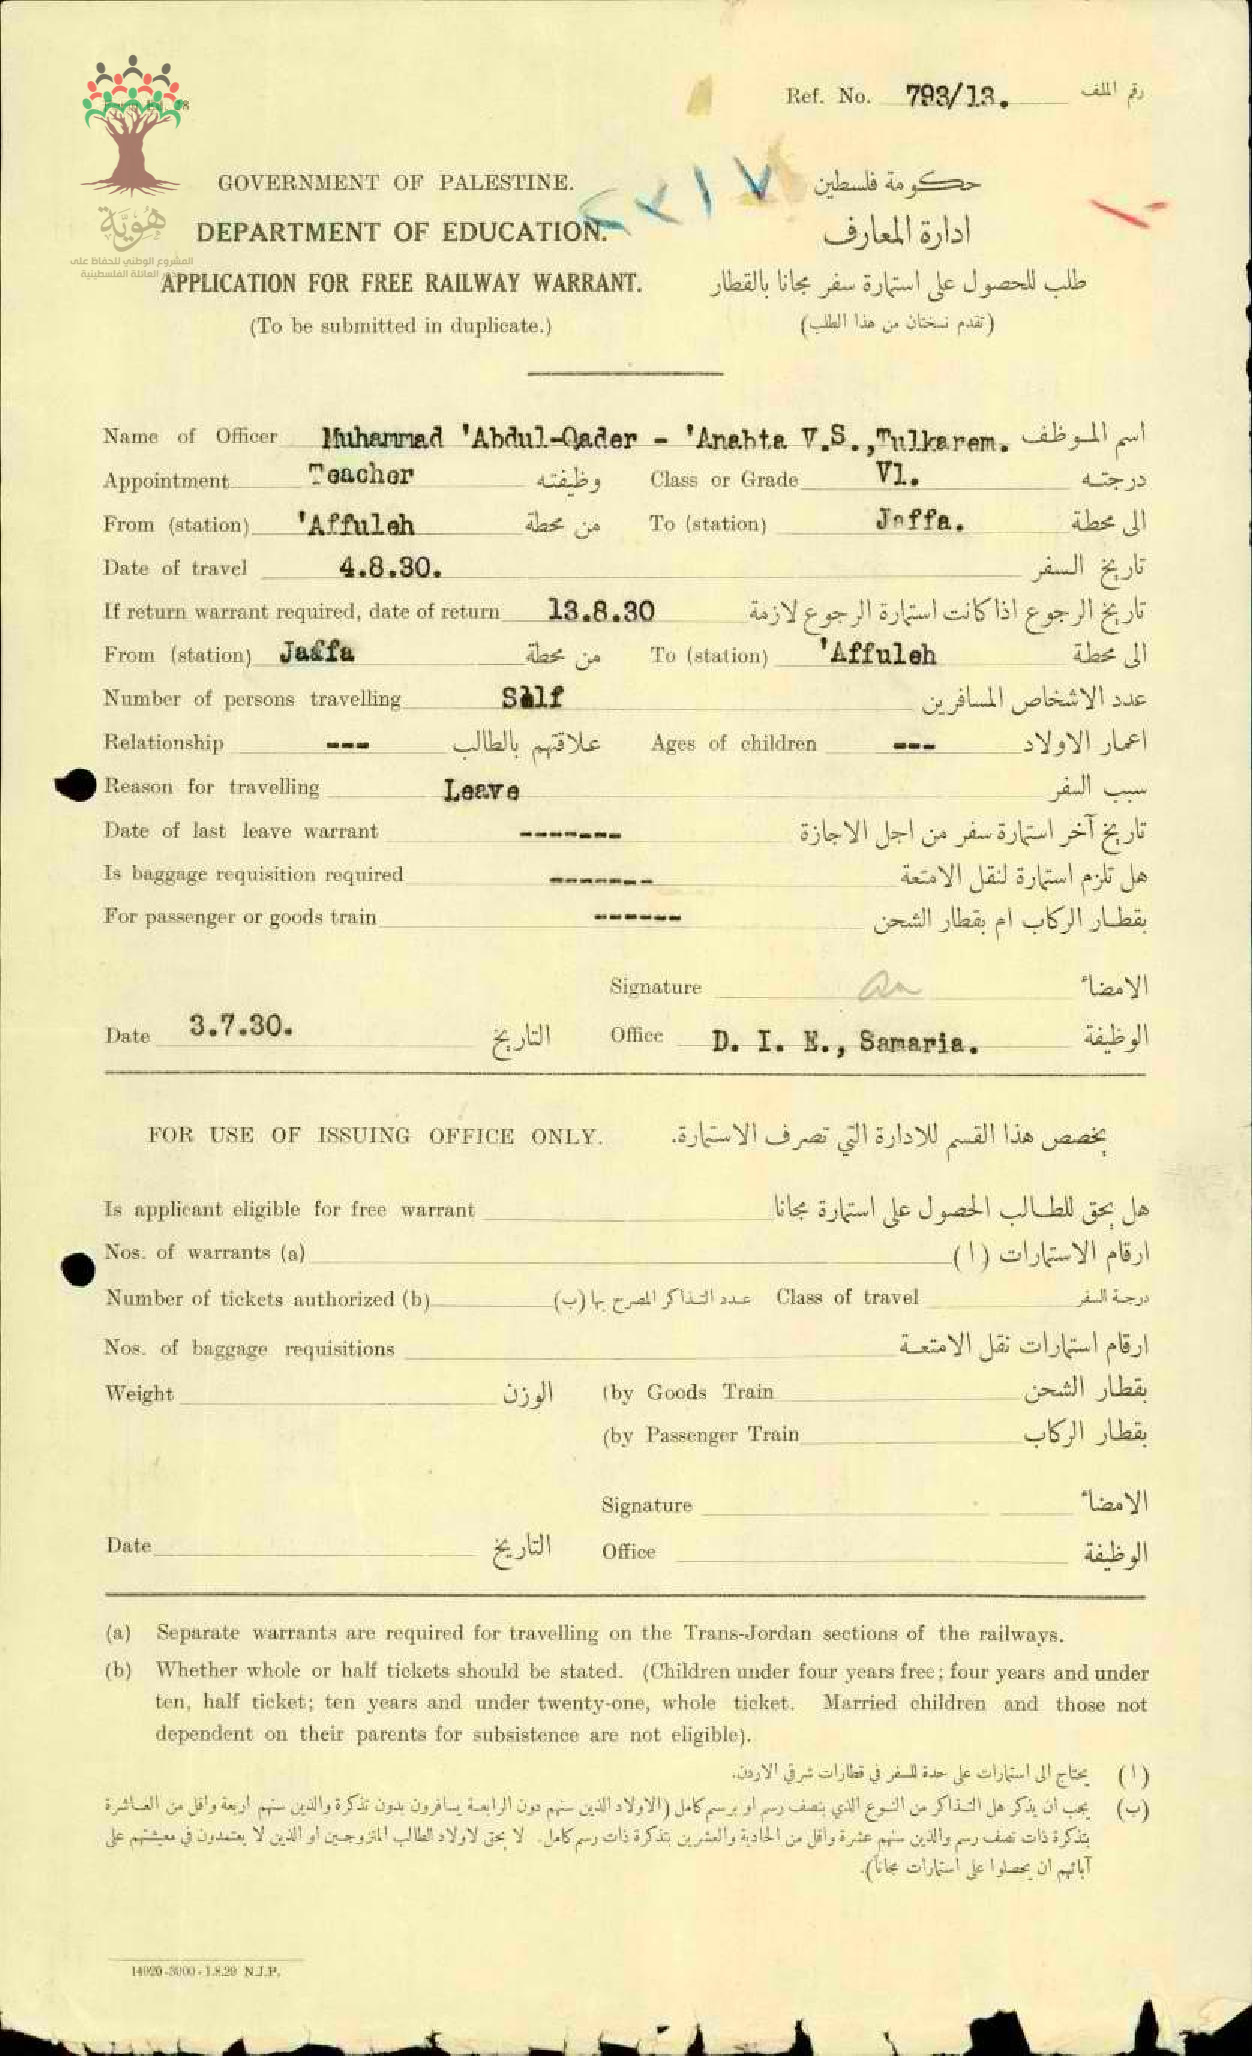 Ref. No. 793/13. رقم الملف
هُوِيَّة
المشروع الوطني للحفاظ على
جذور العائلة الفلسطينية
GOVERNMENT OF PALESTINE. حكومة فلسطين
DEPARTMENT OF EDUCATION. ادارة المعارف
APPLICATION FOR FREE RAILWAY WARRANT. طلب للحصول على استمارة سفر مجانا بالقطار
(To be submitted in duplicate.) (تقدم نسختان من هذا الطلب)
Name of Officer Muhammad 'Abdul-Qader - 'Anabta V.S.,Tulkarem. اسم الموظف
Appointment Teacher وظيفته Class or Grade V1. درجته
From (station) 'Affuleh من محطة To (station) Jaffa. الى محطة
Date of travel 4.8.30. تاريخ السفر
If return warrant required, date of return 13.8.30 تاريخ الرجوع اذا كانت استمارة الرجوع لازمة
From (station) Jaffa من محطة To (station) 'Affuleh الى محطة
Number of persons travelling Self عدد الاشخاص المسافرين
Relationship --- علاقتهم بالطالب Ages of children --- اعمار الاولاد
Reason for travelling Leave سبب السفر
Date of last leave warrant ------- تاريخ آخر استمارة سفر من اجل الاجازة
Is baggage requisition required ------- هل تلزم استمارة لنقل الامتعة
For passenger or goods train ------ بقطار الركاب ام بقطار الشحن
Signature الامضاء
Date 3.7.30. التاريخ Office D. I. E., Samaria. الوظيفة
FOR USE OF ISSUING OFFICE ONLY. يخصص هذا القسم للادارة التي تصرف الاستمارة.
Is applicant eligible for free warrant هل يحق للطالب الحصول على استمارة مجانا
Nos. of warrants (a) ارقام الاستمارات (ا)
Number of tickets authorized (b) عدد التذاكر المصرح بها (ب) Class of travel درجة السفر
Nos. of baggage requisitions ارقام استمارات نقل الامتعة
Weight الوزن (by Goods Train بقطار الشحن
(by Passenger Train بقطار الركاب
Signature الامضاء
Date التاريخ Office الوظيفة
(a) Separate warrants are required for travelling on the Trans-Jordan sections of the railways.
(b) Whether whole or half tickets should be stated. (Children under four years free; four years and under
ten, half ticket; ten years and under twenty-one, whole ticket. Married children and those not
dependent on their parents for subsistence are not eligible).
(ا) يحتاج الى استمارات على حدة للسفر في قطارات شرقي الاردن.
(ب) يجب ان يذكر هل التذاكر من النوع الذي بنصف رسم او برسم كامل (الاولاد الذين سنهم دون الرابعة يسافرون بدون تذكرة والذين سنهم اربعة واقل من العاشرة
بتذكرة ذات نصف رسم والذين سنهم عشرة واقل من الحادية والعشرين بتذكرة ذات رسم كامل. لا يحق لاولاد الطالب المتزوجين او الذين لا يعتمدون في معيشتهم على
آبائهم ان يحصلوا على استمارات مجانا).
14020-3000-1.8.29 N.J.P.